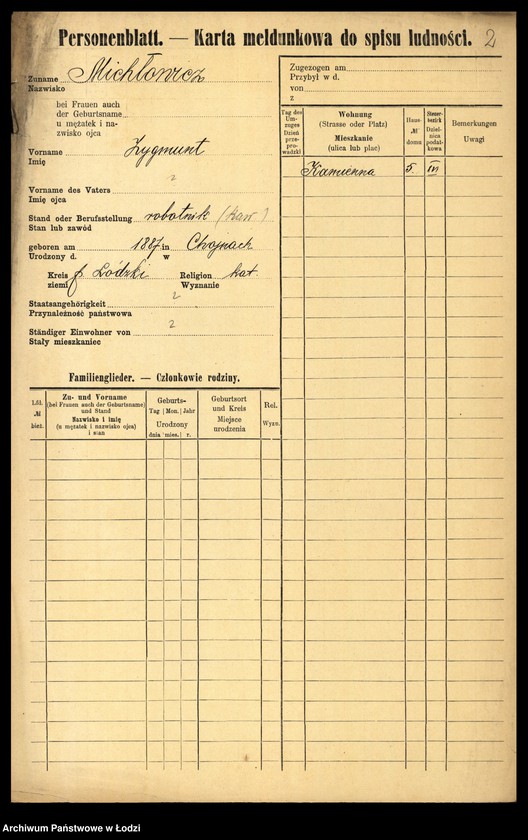 Personenblatt. — Karta meldunkowa do spisu ludności. 2
Zuname Michłowicz
Nazwisko
bei Frauen auch
der Geburtsname
u mężatek i na-
zwisko ojca
Vorname Zygmunt
Imię
?
Vorname des Vaters
Imię ojca
Stand oder Berufsstellung robotnik (kaw.)
Stan lub zawód
geboren am 1887 in Chojnach
Urodzony d. w
Kreis p. Łódzki Religion kat.
ziemi Wyznanie
Staatsangehörigkeit ?
Przynależność państwowa
Ständiger Einwohner von ?
Stały mieszkaniec
Familienglieder. — Członkowie rodziny.
Lfd.
№
bież.
Zu- und Vorname
(bei Frauen auch der Geburtsname)
und Stand
Nazwisko i imię
(u mężatek i nazwisko ojca)
i stan
Geburts-
Tag | Mon. | Jahr
Urodzony
dnia mies. r.
Geburtsort
und Kreis
Miejsce
urodzenia
Rel.
Wyzn.
Zugezogen am
Przybył w d.
von
z
Tag des
Um-
zuges
Dzień
prze-
pro-
wadzki
Wohnung
(Strasse oder Platz)
Mieszkanie
(ulica lub plac)
Haus-
№
domu
Steuer-
bezirk
Dziel-
nica
podat-
kowa
Bemerkungen
Uwagi
Kamienna 5. III
Archiwum Państwowe w Łodzi